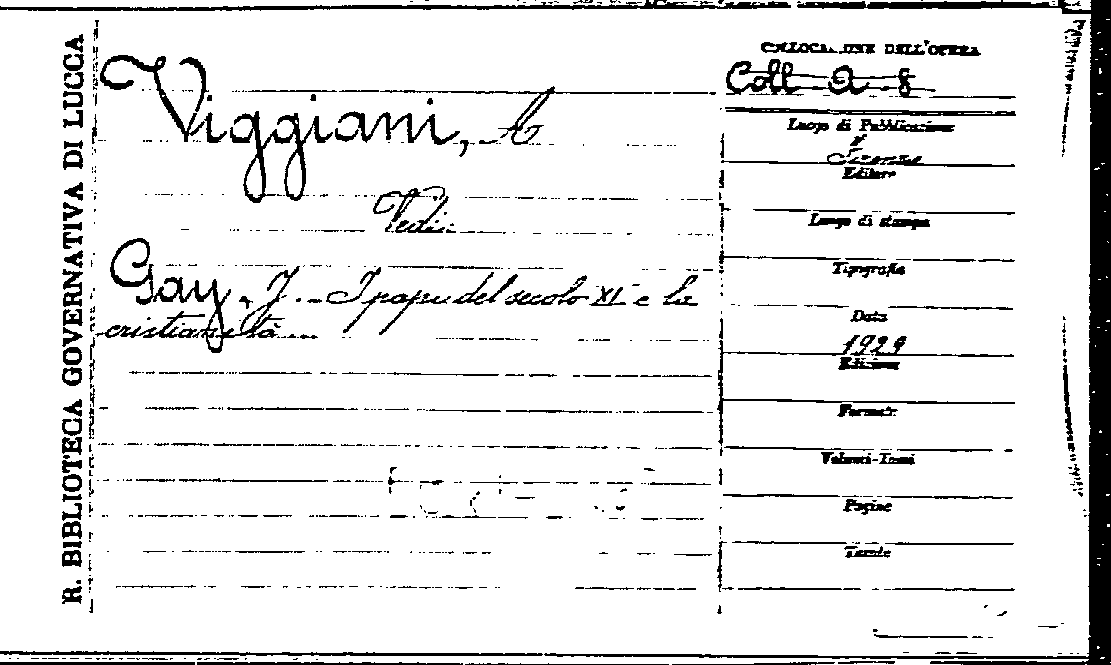 R. BIBLIOTECA GOVERNATIVA DI LUCCA
Viggiani,
Vedi:
Gay, J. - I papi del secolo XI e la
cristianità...
COLLOCAZIONE DELL'OPERA
Coll A-8
Luogo di Pubblicazione
Firenze
Editore
Luogo di stampa
Tipografia
Data
1929
Edizione
Formato
Volumi-Tomi
Pagine
Tavole